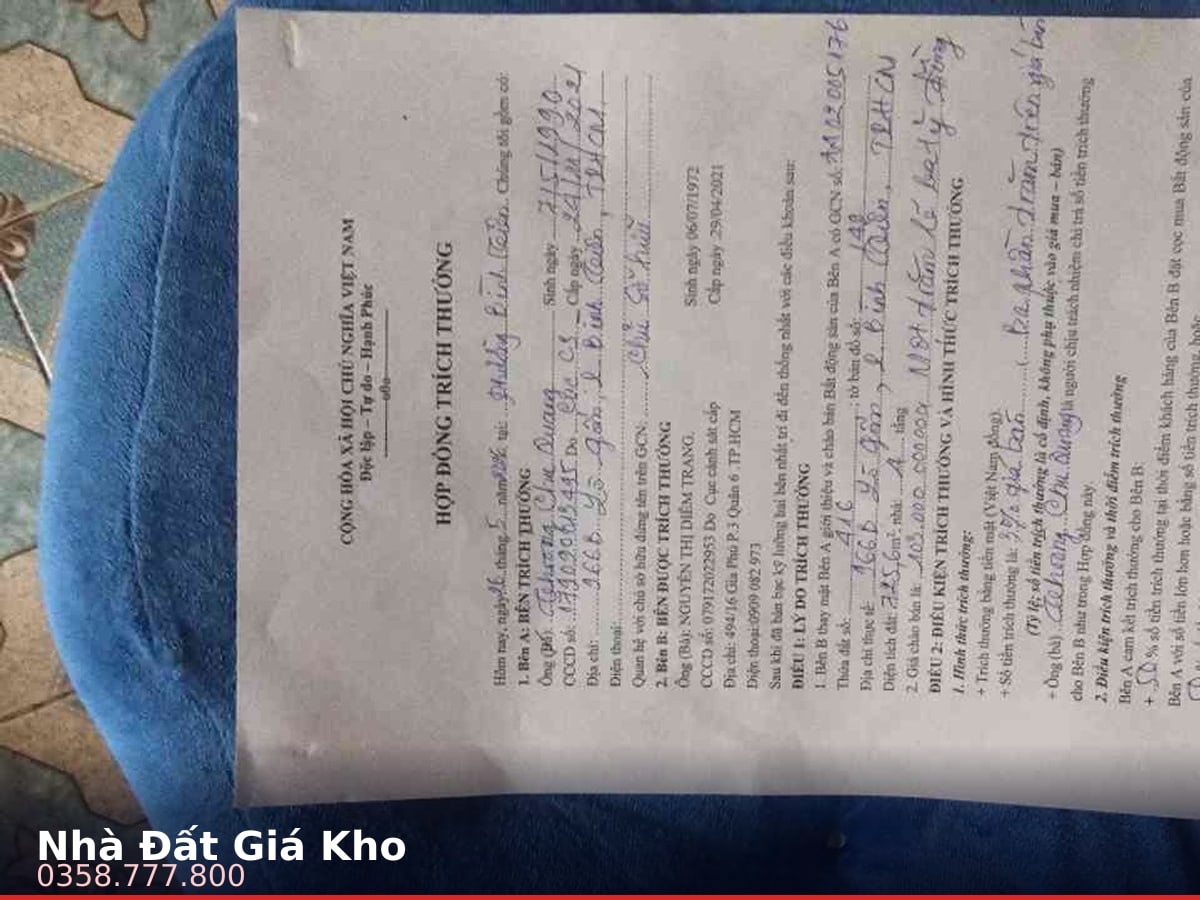 CỘNG HÒA XÃ HỘI CHỦ NGHĨA VIỆT NAM
Độc lập – Tự do – Hạnh Phúc
HỢP ĐỒNG TRÍCH THƯỞNG
Hôm nay, ngày 26 tháng 5 năm tại: phường Bình Tiên. Chúng tôi gồm có:
1. Bên A: BÊN TRÍCH THƯỞNG
Ông (Bà) Chu Dương Sinh ngày 7/5/1990
CCCD số: Do Cục CS Cấp ngày
Địa chỉ: 266B Lò Gốm, P Bình Tiên, TPHCM
Điện thoại:
Quan hệ với chủ sở hữu đứng tên trên GCN: Chủ sở hữu
2. Bên B: BÊN ĐƯỢC TRÍCH THƯỞNG
Ông (Bà): NGUYỄN THỊ DIỄM TRANG
CCCD số: 079172022953 Do Cục cảnh sát cấp
Sinh ngày 06/07/1972
Cấp ngày 29/04/2021
Địa chỉ: 494/16 Gia Phú P.3 Quận 6 TP.HCM
Điện thoại:0909 082 973
Sau khi đã bàn bạc kỹ lưỡng hai bên nhất trí đi đến thống nhất với các điều khoản sau:
ĐIỀU 1: LÝ DO TRÍCH THƯỞNG
1. Bên B thay mặt Bên A giới thiệu và chào bán Bất động sản của Bên A có GCN số:
Thửa đất số: 416 ; tờ bản đồ số: 148
Địa chỉ thực tế: 266B Lò Gốm, P Bình Tiên, TPHCM
Diện tích đất: 725,6 m²; nhà: 1 tầng
2. Giá chào bán là: 103.000.000.000đ Một trăm lẻ ba tỷ đồng
ĐIỀU 2: ĐIỀU KIỆN TRÍCH THƯỞNG VÀ HÌNH THỨC TRÍCH THƯỞNG
1. Hình thức trích thưởng:
+ Trích thưởng bằng tiền mặt (Việt Nam đồng)
+ Số tiền trích thưởng là: 3% giá bán (Ba phần trăm trên giá bán
(Tỷ lệ; số tiền trích thưởng là cố định, không phụ thuộc vào giá mua – bán)
+ Ông (bà) Chu Dương là người chịu trách nhiệm chi trả số tiền trích thưởng
cho Bên B như trong Hợp đồng này.
2. Điều kiện trích thưởng và thời điểm trích thưởng
Bên A cam kết trích thưởng cho Bên B:
+ 50 % số tiền trích thưởng tại thời điểm khách hàng của Bên B đặt cọc mua Bất động sản của
Bên A với số tiền lớn hơn hoặc bằng số tiền trích thưởng
Nhà Đất Giá Kho
0358.777.800